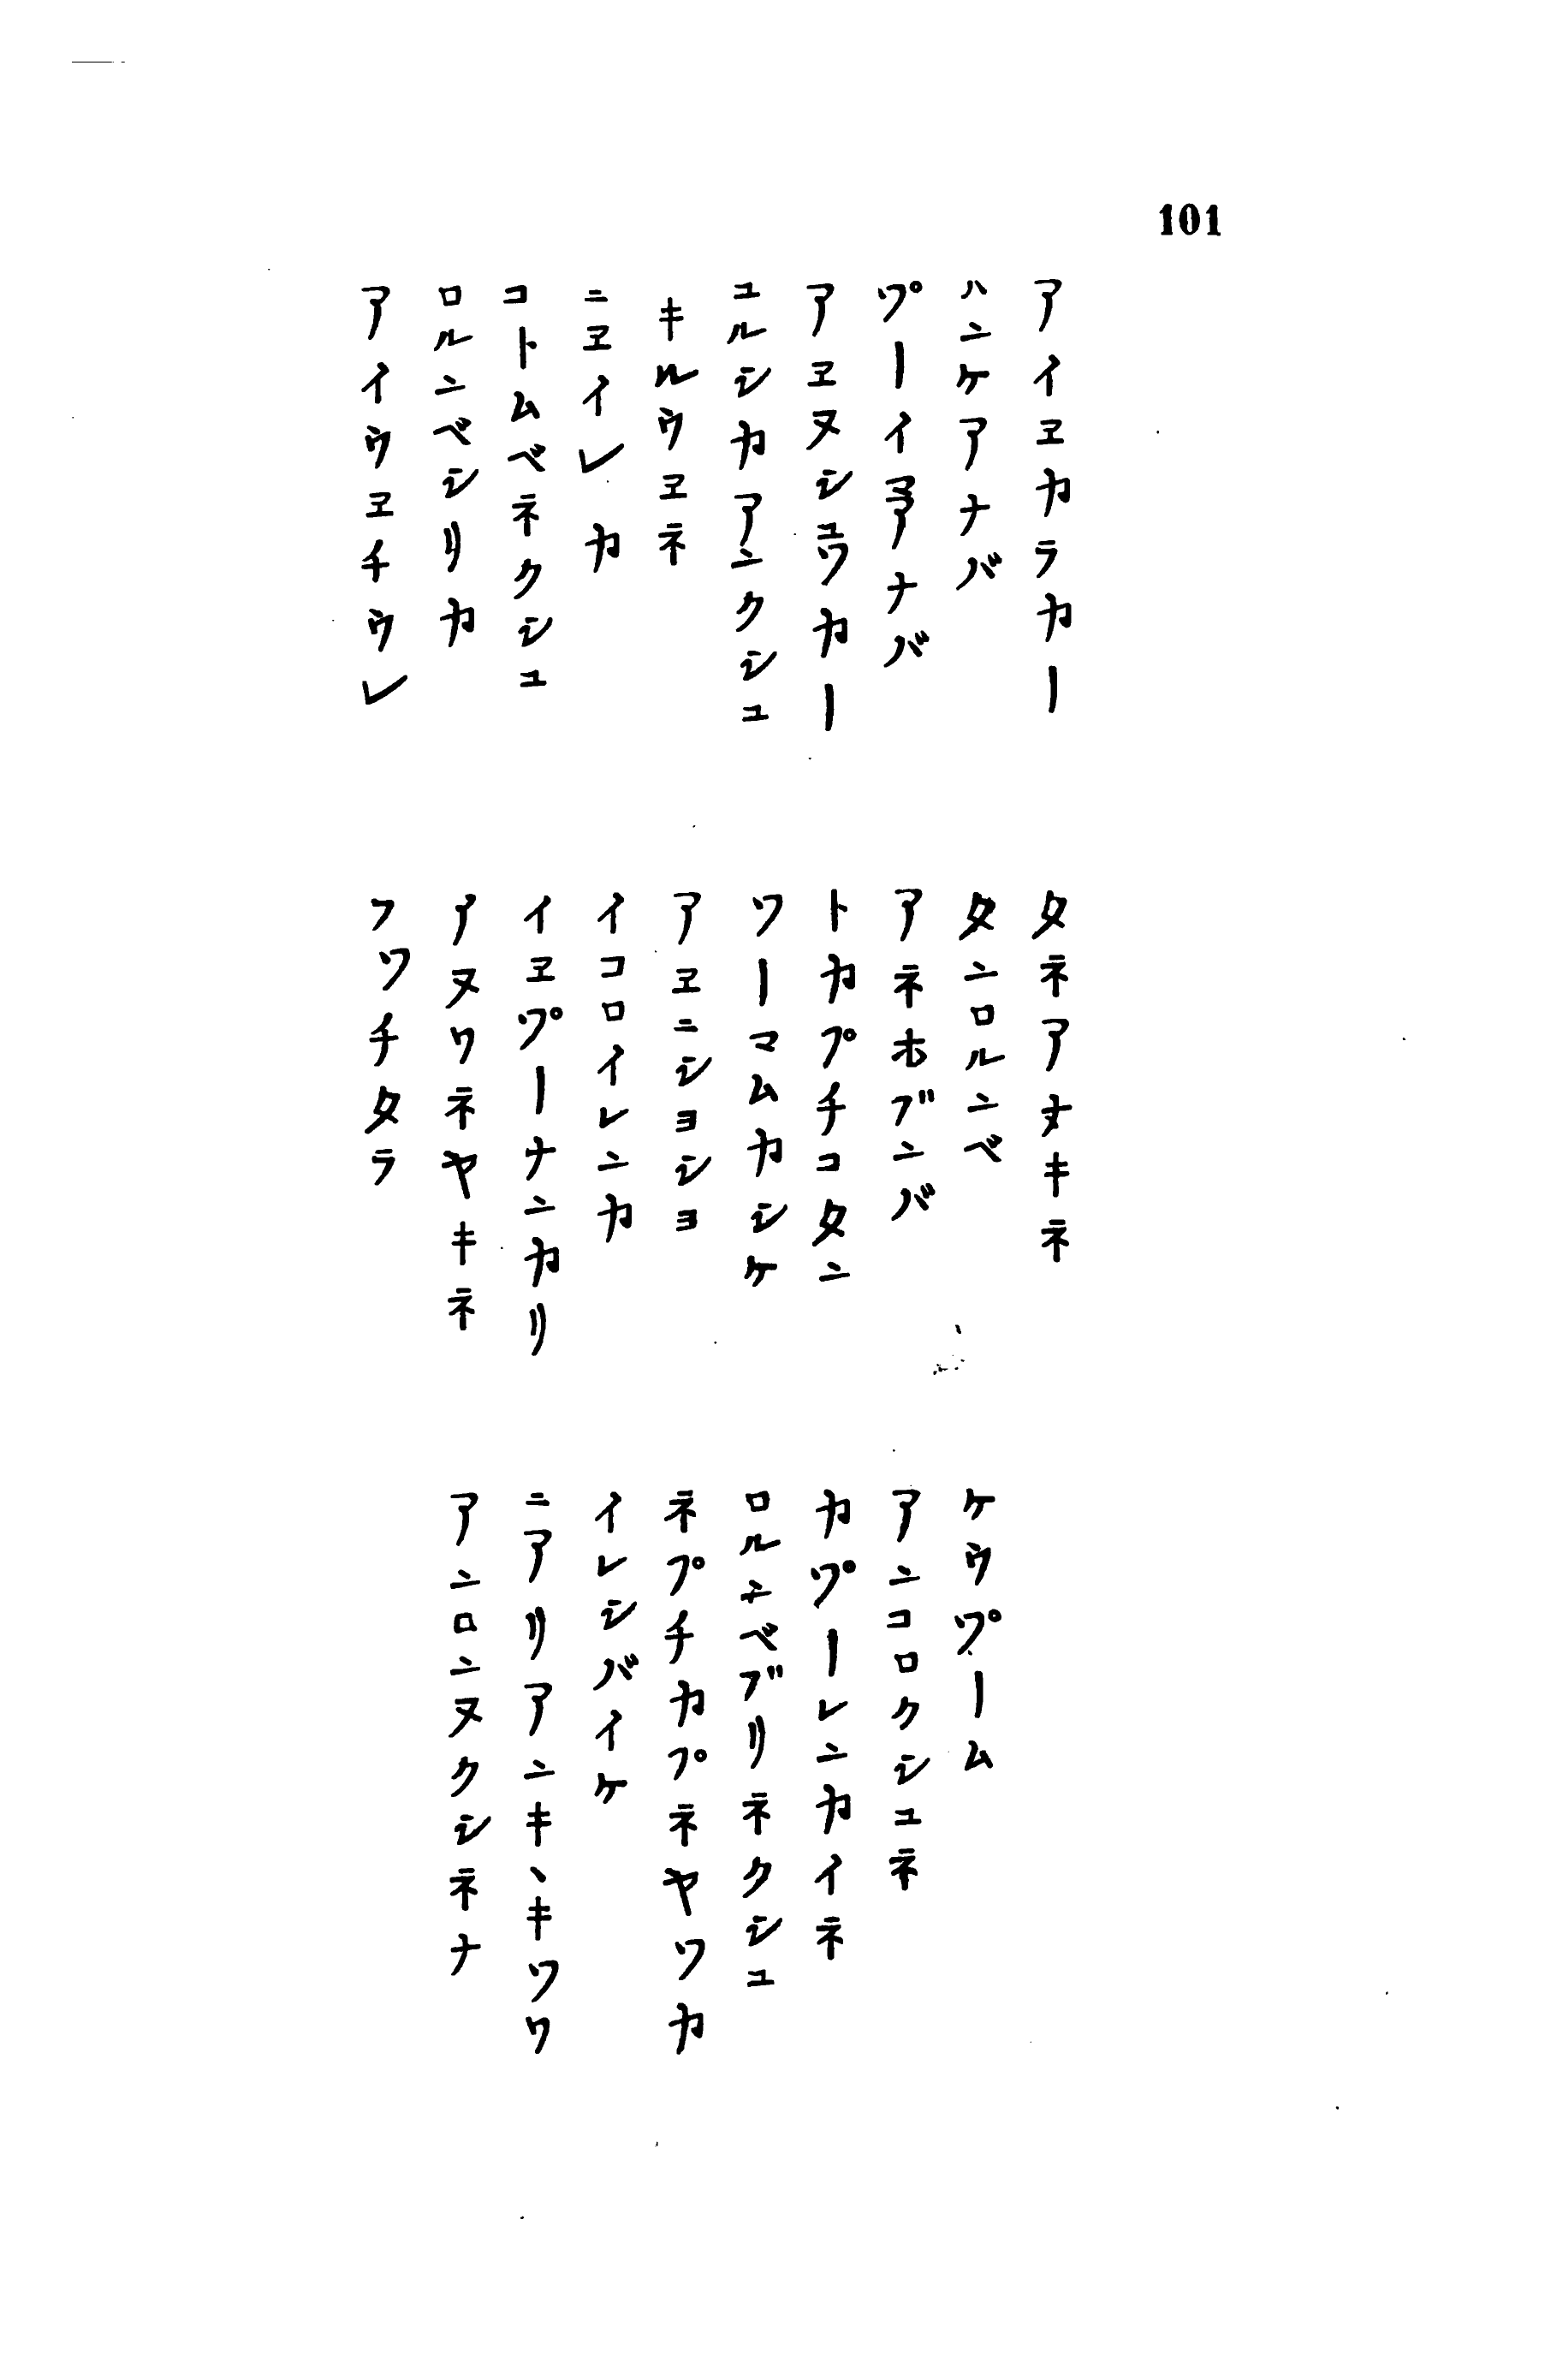 101
アイヱカラカー
ハンケアナバ
ツ゚ーイマアナバ
アヱヌシュツカー
ユルシカアンクシュ
キルウヱネ
ニヱイレカ
コトムベネクシュ
ロルンベシリカ
アイウヱチウレ
タネアナキネ
タンロルンベ
アネホブンバ
トカプチコタン
ツーマムカシケ
アヱニシヨシヨ
イコロイレンカ
イヱツ゚ーナンカリ
アヌワネヤキネ
フツチタラ
ケウツ゚ーム
アンコロクシュネ
カツ゚ーレンカイネ
ロルンベブリネクシュ
ネプチカプネヤツカ
イレシバイケ
ニアリアンキヽキツワ
アンロンヌクシネナ